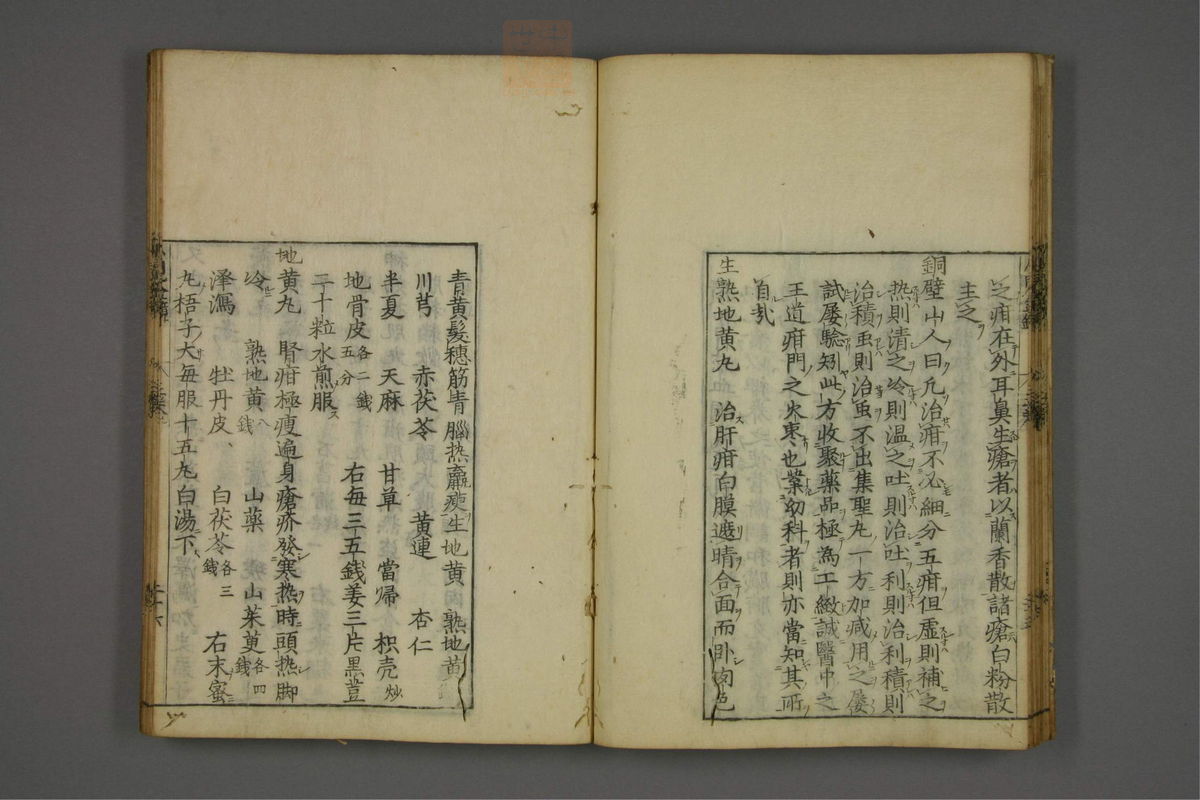 之疳在外耳鼻生瘡者以蘭香散諸瘡白粉散
主之
銅壁山人曰凢治疳不必細分五疳但虚則補之
熱則清之冷則温之吐則治吐利則治利積則
治積虫則治虫不出集聖丸一方加减用之屡
試屡驗矧此方收聚藥品極為工緻誠醫中之
王道疳門之也業幼科者則亦當知其所
自㢤
生熟地黄丸 治肝疳白膜遮睛合面而卧肉色
青黄髮穗筋青腦热羸瘦生地黄 熟地黄
川芎 赤茯苓 黄連 杏仁
半夏 天麻 甘草 當帰 枳壳炒
地骨皮各二錢五分 右每三五錢姜三片黒荳
二十粒水煎服
地黄丸 腎疳極瘦遍身瘡疥發寒热時頭热脚
冷 熟地黄八錢 山藥 山茱萸各四錢
泽瀉 牡丹皮、 白茯苓各三錢 右末蜜
丸梧子大每服十五丸白湯下